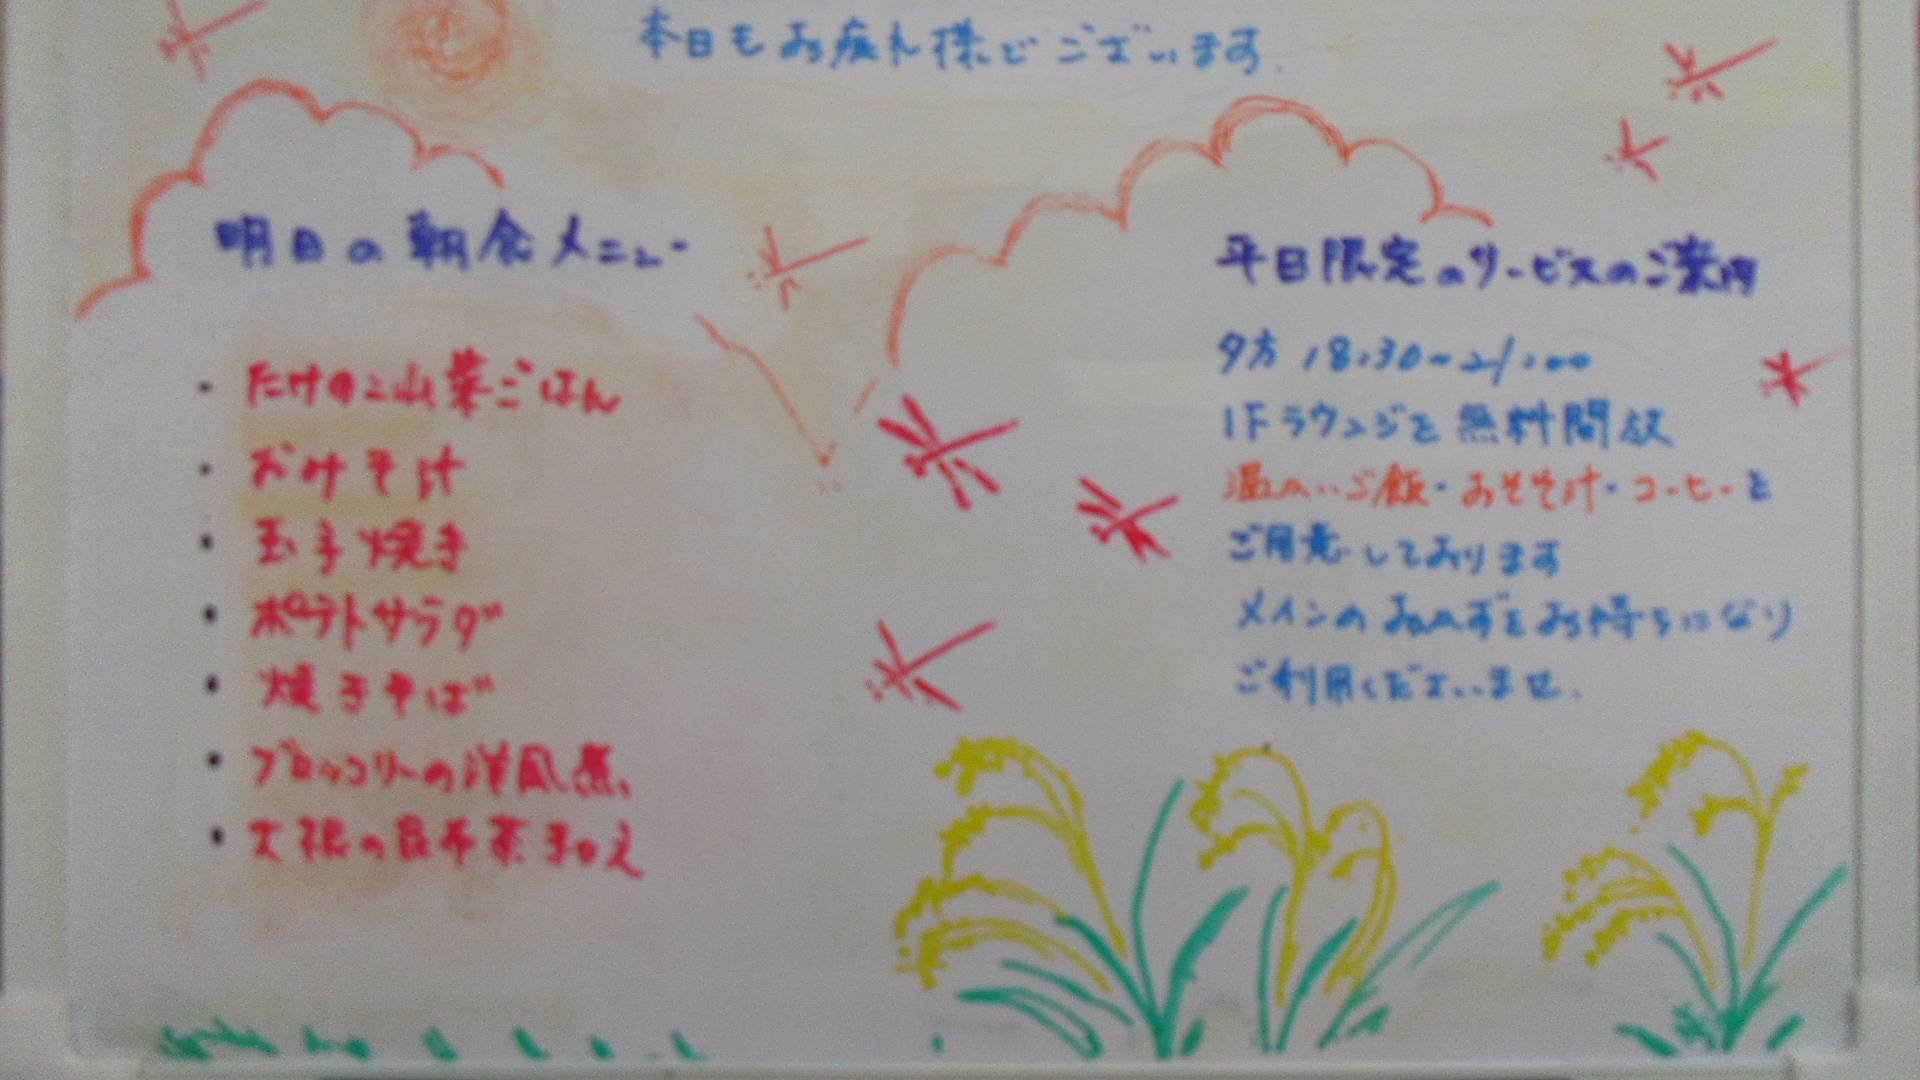 本日もお疲れ様でございます.
明日の朝食メニュー
・たけのこ山菜ごはん
・おみそ汁
・玉子焼き
・ポテトサラダ
・焼きそば
・ブロッコリーの洋風煮
・大根の昆布茶和え
平日限定のサービスのご案内
夕方 18:30~21:00
1Fラウンジを無料開放
温かいご飯・おみそ汁・コーヒーを
ご用意しております
メインのおかずをお持ちになり
ご利用くださいませ.